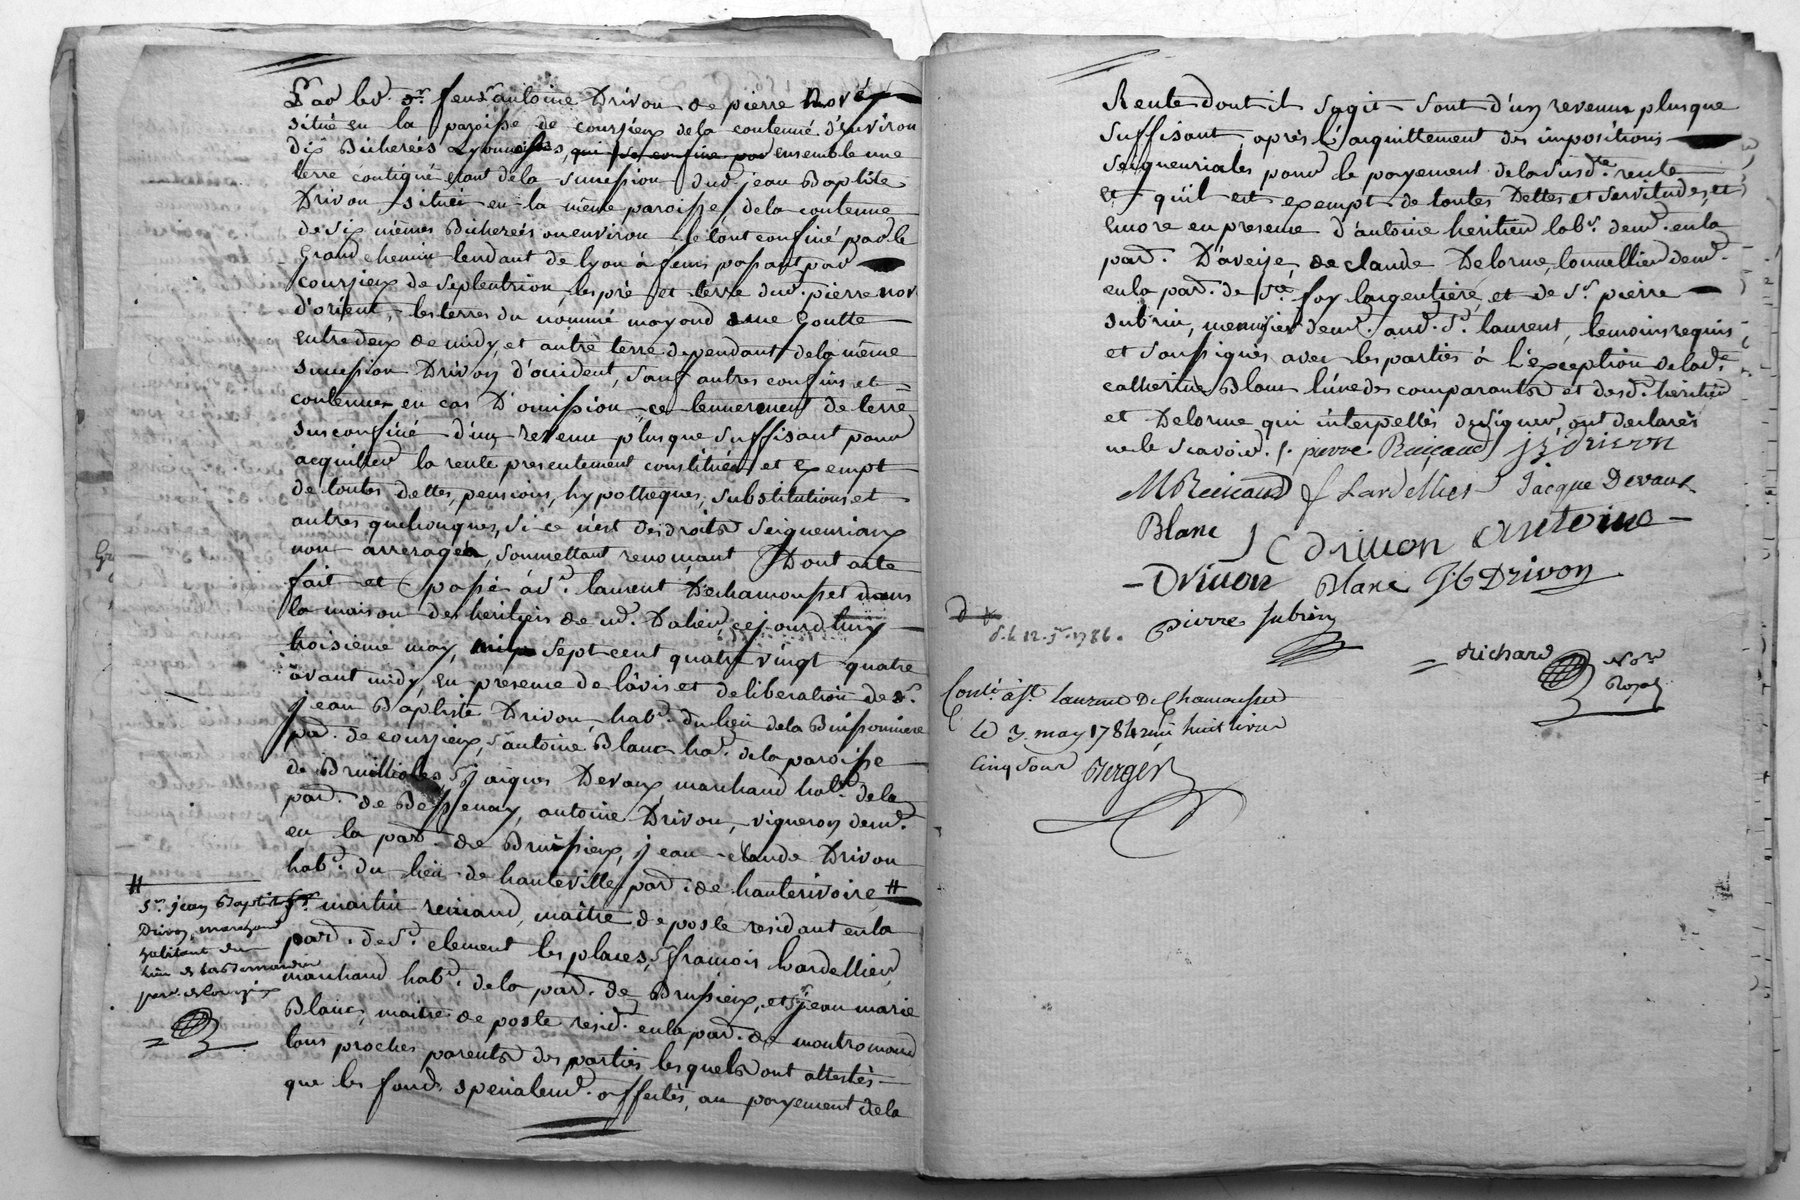 Par led. Sr. feu Sr antoine Drivon de pierre Nové
situé en la paroisse de coursieux de la contenue d'environ
dix Bicherées Lyonnoises, qui se confine par ensemble une
terre contiguë etant de la succession dud. jean Baptiste
Drivon située en la même paroisse, de la contenue
de six mêmes Bicherées ou environ le tout confiné par le
Grand chemin tendant de lyon à feurs passant par
coursieux de septentrion, les pré et terre dud. pierre nové
d'orient, les terres du nommé mayoud une Goutte
entredeux de midy, et autre terre dependant de la même
succession Drivon d'occident, sauf autres confins et
contenues en cas D'omission ce tennement de terre
susconfiné d'un revenu plus que suffisant pour
acquitter la rente presentement constituée et exempt
de toutes dettes, pensions, hypotheques, substitutions et
autres quelconques, si ce n'est des droits seigneuriaux
non arreragés, soumettant renonçant Dont acte
fait et passé à St. laurent Dechamousset dans
la maison des heritiers de mr. Dalien, cejourdhuy
troisieme may, mil sept cent quatre vingt quatre
avant midy, en presence de l'avis et deliberation de Sr.
jean Baptiste Drivon, habt. du lieu de la Buissonniere
par. de coursieux, Sr antoine Blanc hat. de la paroisse
de Brullioles, Sr jaiques Devaux marchand habt. de la
par. de Bessenay, antoine Drivon, vigneron demt.
en la par. de Brussieux, jean claude Drivon
habt. du lieu de hauteville par. de hauterivoire #
#
Sr. jean Baptiste
Drivon marchand
habitant du
lieu de
par. de Coursieux
Sr. martin reinaud, maître de poste residant en la
par. de St. clement les places, Sr francois Lardellier,
marchand habt. de la par. de Brussieux, et Sr jean marie
Blanc, maitre de poste resid. en la par. de montromand
tous proches parents des parties, lesquels ont attestés
que les fonds specialemt. affectés, au payement de la
Rente dont il s'agit sont d'un revenu plus que
suffisant, après l'acquittement des impositions
seigneuriales pour le payement de la susde. rente
et qu'il est exempt de toutes Dettes et servitudes, et
encore en presence d'antoine heritier labr. demt. en la
par. D'aveise, de claude Delorme, tonnellier demt.
en la par. de Ste. foy l'argentiere, et de Sr pierre
subrin, menusier demt. aud. St. laurent, temoins requis
et soussignés avec les parties à l'exception de lade.
catherine Blanc l'une des comparants et desd. heritier
et Delorme qui interpellés de signer, ont declarés
ne le scavoir. pierre Reinaud JB drivon
MReinaud f Lardellier Jacque Devaux
Blanc J C drivon antoine
Drivon Blanc Jb Drivon
pierre subrin
d. le 12. 1786.
richard Nore
Royal
Conté. à St. Laurent De Chamousset
le 3 may 1784 reçu huit livres
cinq sous Berger